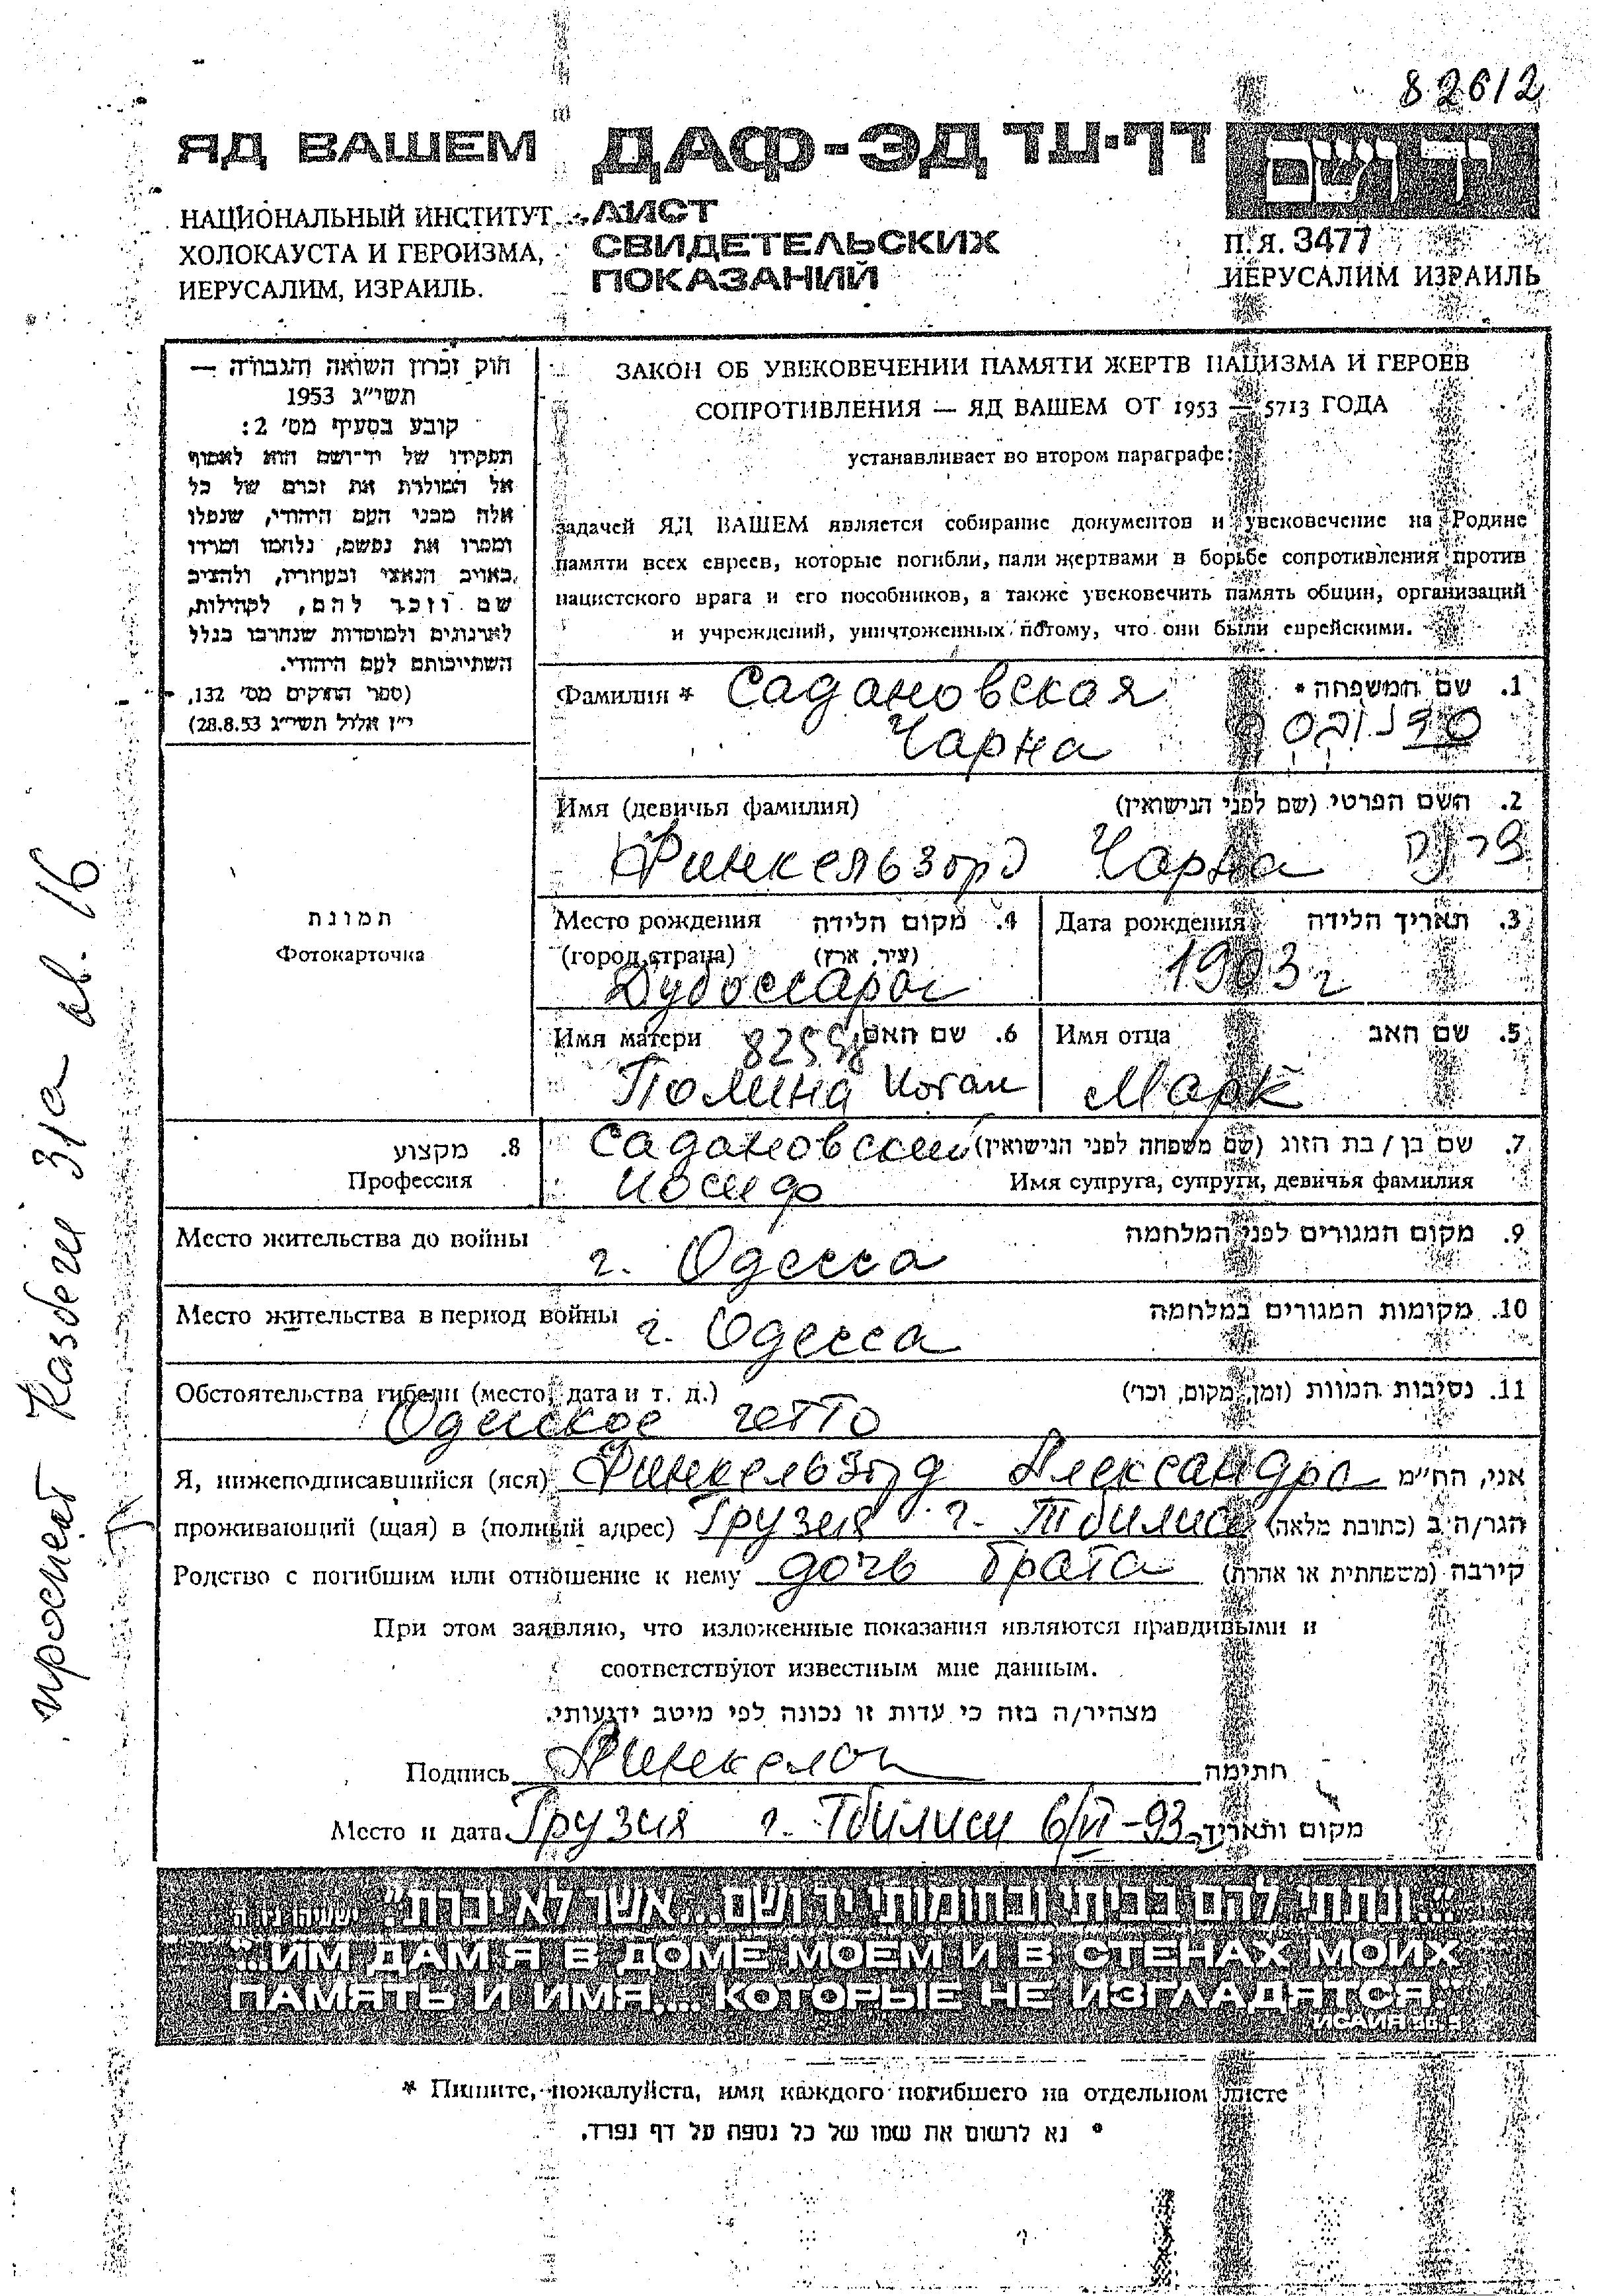 82612
ЯД ВАШЕМ ДАФ-ЭД דף-עד יד ושם
НАЦИОНАЛЬНЫЙ ИНСТИТУТ
ХОЛОКАУСТА И ГЕРОИЗМА,
ИЕРУСАЛИМ, ИЗРАИЛЬ.
ЛИСТ
СВИДЕТЕЛЬСКИХ
ПОКАЗАНИЙ
П.Я. 3477
ИЕРУСАЛИМ ИЗРАИЛЬ
חוק זכרון השואה והגבורה —
תשי"ג 1953
קובע בסעיף מס' 2:
תפקידו של יד-ושם הוא לאסוף
אל המולדת את זכרם של כל
אלה מבני העם היהודי, שנפלו
ומסרו את נפשם, נלחמו ומרדו
באויב הנאצי ובעוזריו, ולהציב
שם וזכר להם, לקהילות,
לארגונים ולמוסדות שנחרבו בגלל
השתייכותם לעם היהודי.
(ספר החוקים מס' 132,
י"ז אלול תשי"ג 28.8.53)
ЗАКОН ОБ УВЕКОВЕЧЕНИИ ПАМЯТИ ЖЕРТВ НАЦИЗМА И ГЕРОЕВ
СОПРОТИВЛЕНИЯ — ЯД ВАШЕМ ОТ 1953 — 5713 ГОДА
устанавливает во втором параграфе:
задачей ЯД ВАШЕМ является собирание документов и увековечение на Родине
памяти всех евреев, которые погибли, пали жертвами в борьбе сопротивления против
нацистского врага и его пособников, а также увековечить память общин, организаций
и учреждений, уничтоженных потому, что они были еврейскими.
Фамилия * Садановская 1. שם המשפחה *
Чарна
Имя (девичья фамилия) 2. השם הפרטי (שם לפני הנישואין)
Финкельзорд Чарна
Место рождения 4. מקום הלידה
(город, страна) (עיר, ארץ)
Дубоссары
Дата рождения 3. תאריך הלידה
1903 г
Имя матери 6. שם האם
Полина Коган
Имя отца 5. שם האב
Марк
8. מקצוע
Профессия
Садановский 7. שם בן / בת הזוג (שם משפחה לפני הנישואין)
Иосиф Имя супруга, супруги, девичья фамилия
Место жительства до войны г. Одесса 9. מקום המגורים לפני המלחמה
Место жительства в период войны г. Одесса 10. מקומות המגורים במלחמה
Обстоятельства гибели (место, дата и т. д.) 11. נסיבות המוות (זמן, מקום, וכו')
Одесское гетто
Я, нижеподписавшийся (яся) Финкельзорд Александра אני, הח"מ
проживающий (щая) в (полный адрес) Грузия г. Тбилиси הגר/ה ב (כתובת מלאה)
Родство с погибшим или отношение к нему дочь брата קירבה (משפחתית או אחרת)
При этом заявляю, что изложенные показания являются правдивыми и
соответствуют известным мне данным.
מצהיר/ה בזה כי עדות זו נכונה לפי מיטב ידיעותי.
Подпись חתימה
Место и дата Грузия г. Тбилиси 6/VI-93 מקום ותאריך
проспект Казбеги 31а кв. 16
"...ונתתי להם בביתי ובחומותי יד ושם...אשר לא יכרת" ישעיהו נו ה
"...ИМ ДАМ Я В ДОМЕ МОЕМ И В СТЕНАХ МОИХ
ПАМЯТЬ И ИМЯ.... КОТОРЫЕ НЕ ИЗГЛАДЯТСЯ."
ИСАИЯ 56. 5
* Пишите, пожалуйста, имя каждого погибшего на отдельном листе
* נא לרשום את שמו של כל נספה על דף נפרד.